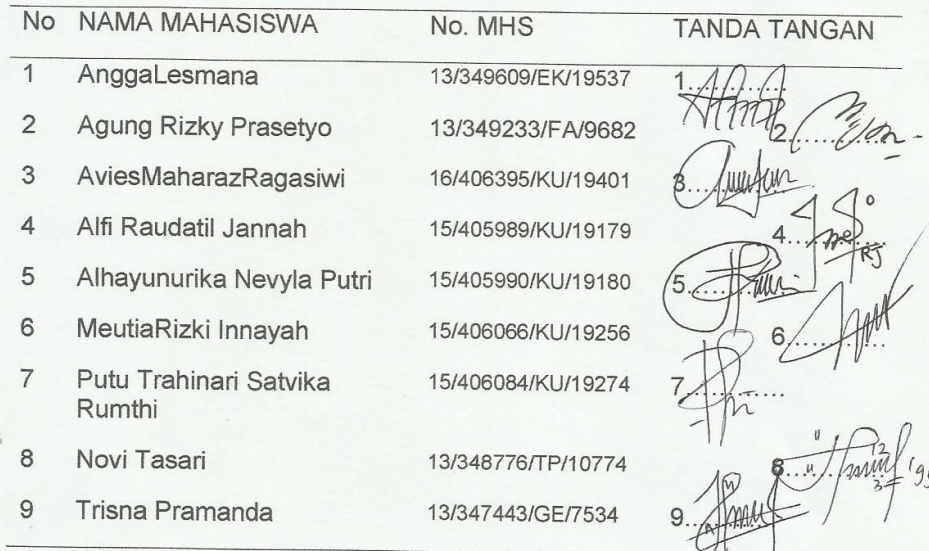 No NAMA MAHASISWA No. MHS TANDA TANGAN
1 AnggaLesmana 13/349609/EK/19537 1..............
2 Agung Rizky Prasetyo 13/349233/FA/9682 2..............
3 AviesMaharazRagasiwi 16/406395/KU/19401 3..............
4 Alfi Raudatil Jannah 15/405989/KU/19179 4.............. RJ
5 Alhayunurika Nevyla Putri 15/405990/KU/19180 5..............
6 MeutiaRizki Innayah 15/406066/KU/19256 6..............
7 Putu Trahinari Satvika 15/406084/KU/19274 7..............
Rumthi
8 Novi Tasari 13/348776/TP/10774 8..............
9 Trisna Pramanda 13/347443/GE/7534 9..............